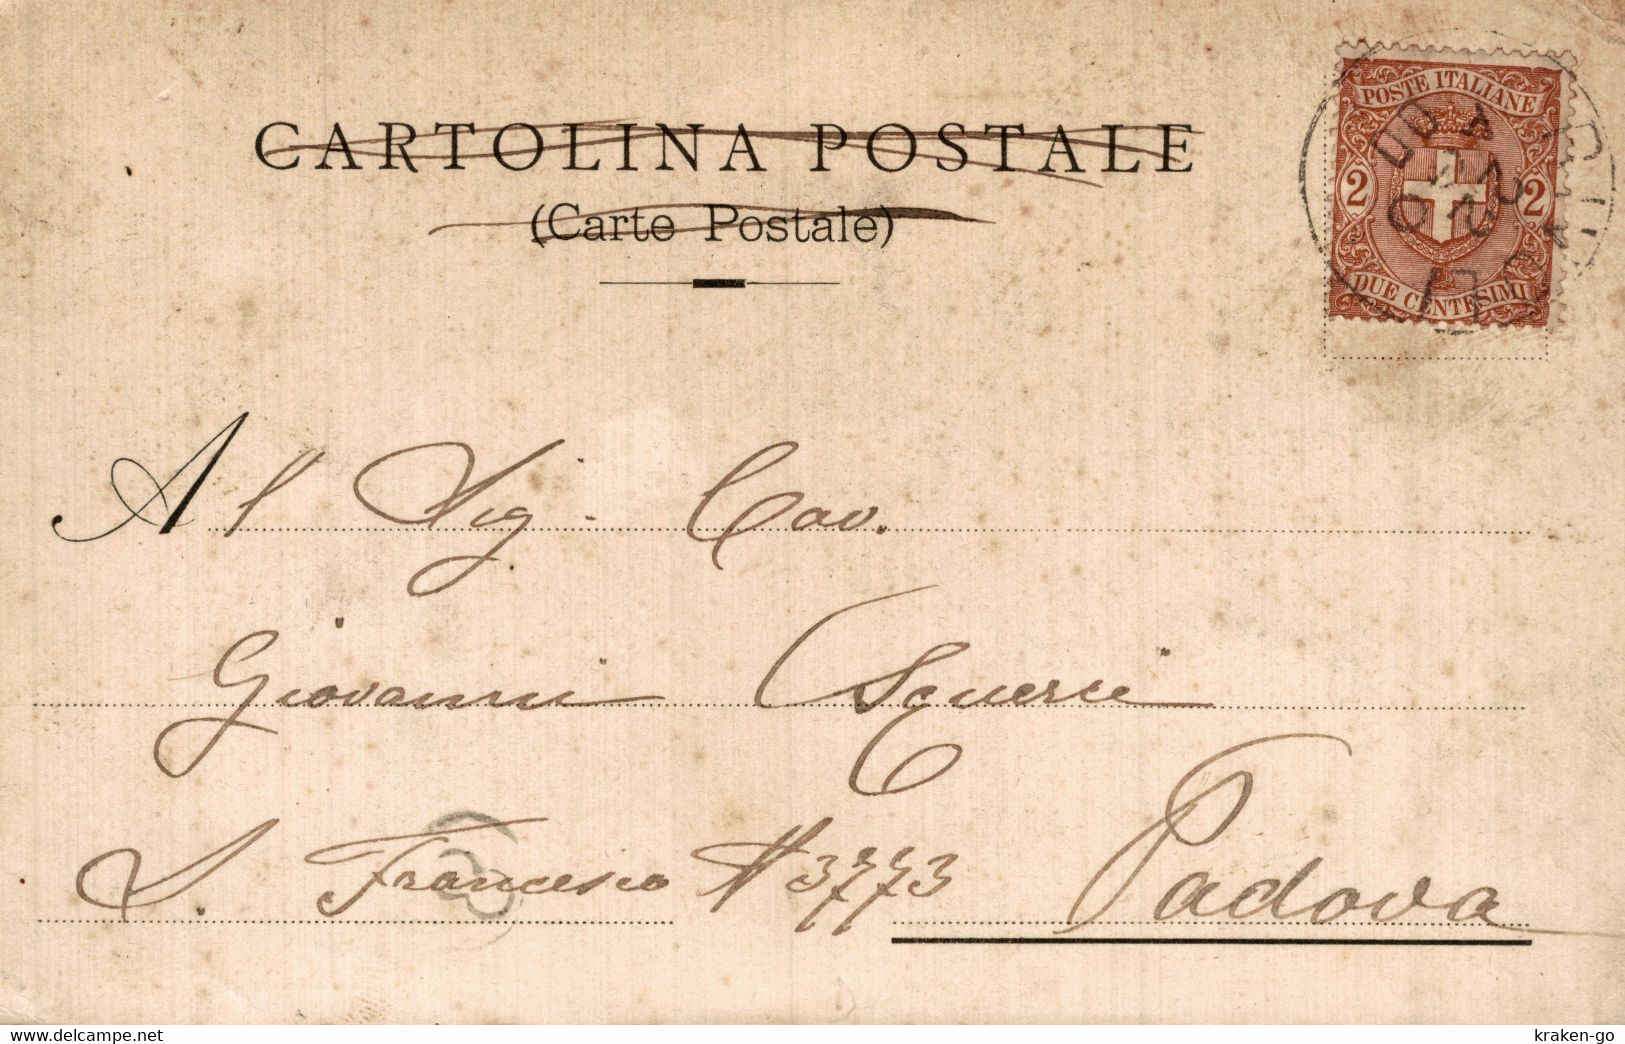 CARTOLINA POSTALE
(Carte Postale)
POSTE ITALIANE
2 2
DUE CENTESIMI
Al Sig. Cav.
Giovanni Squerci
S. Francesco N 3773 Padova
delcampe.net
kraken-go